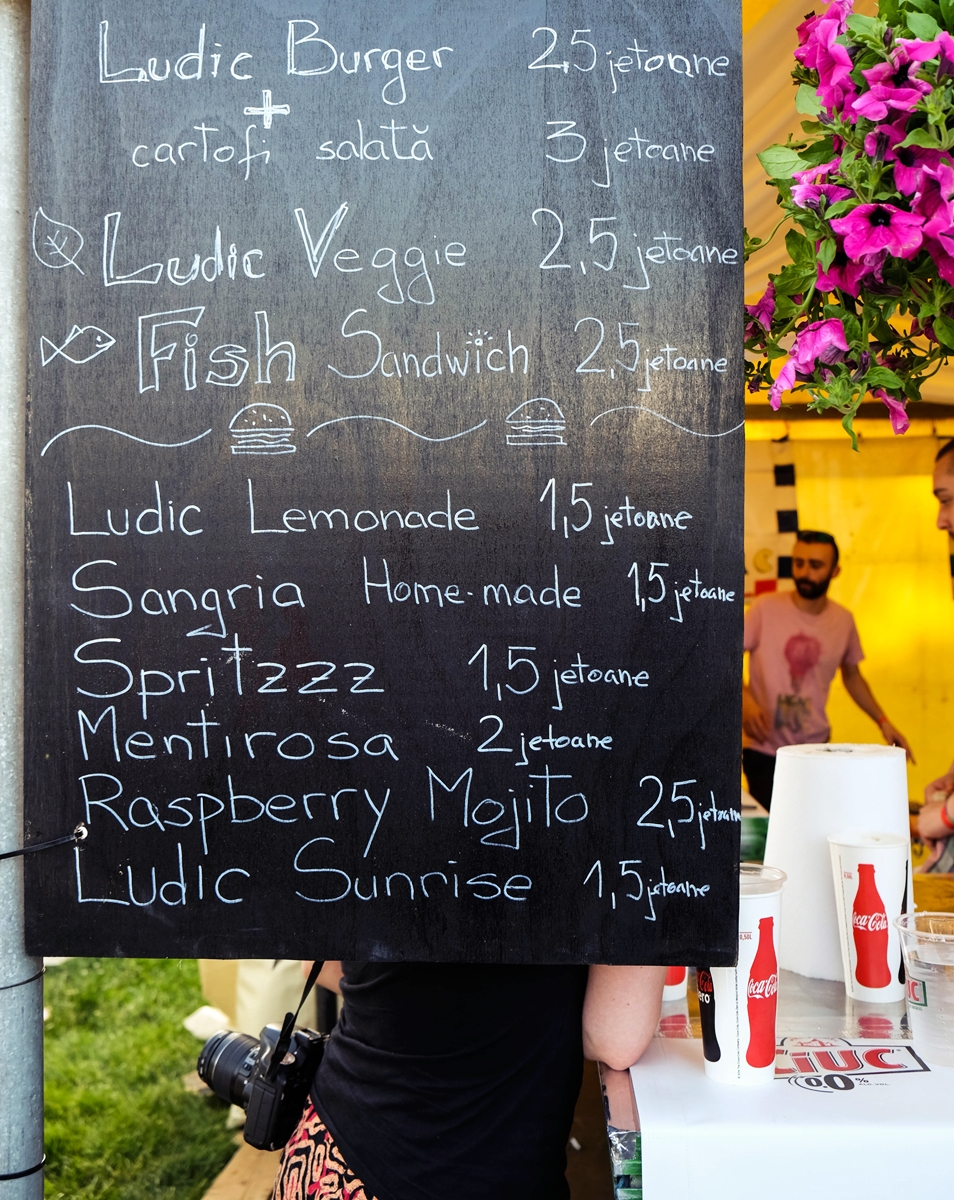 Ludic Burger 2,5 jetoane
+
cartofi salată 3 jetoane
Ludic Veggie 2,5 jetoane
Fish Sandwich 2,5 jetoane
Ludic Lemonade 1,5 jetoane
Sangria Home-made 1,5 jetoane
Spritzzz 1,5 jetoane
Mentirosa 2 jetoane
Raspberry Mojito 2,5 jetoane
Ludic Sunrise 1,5 jetoane
Coca-Cola
Coca-Cola
zero
CIUC
0,0%